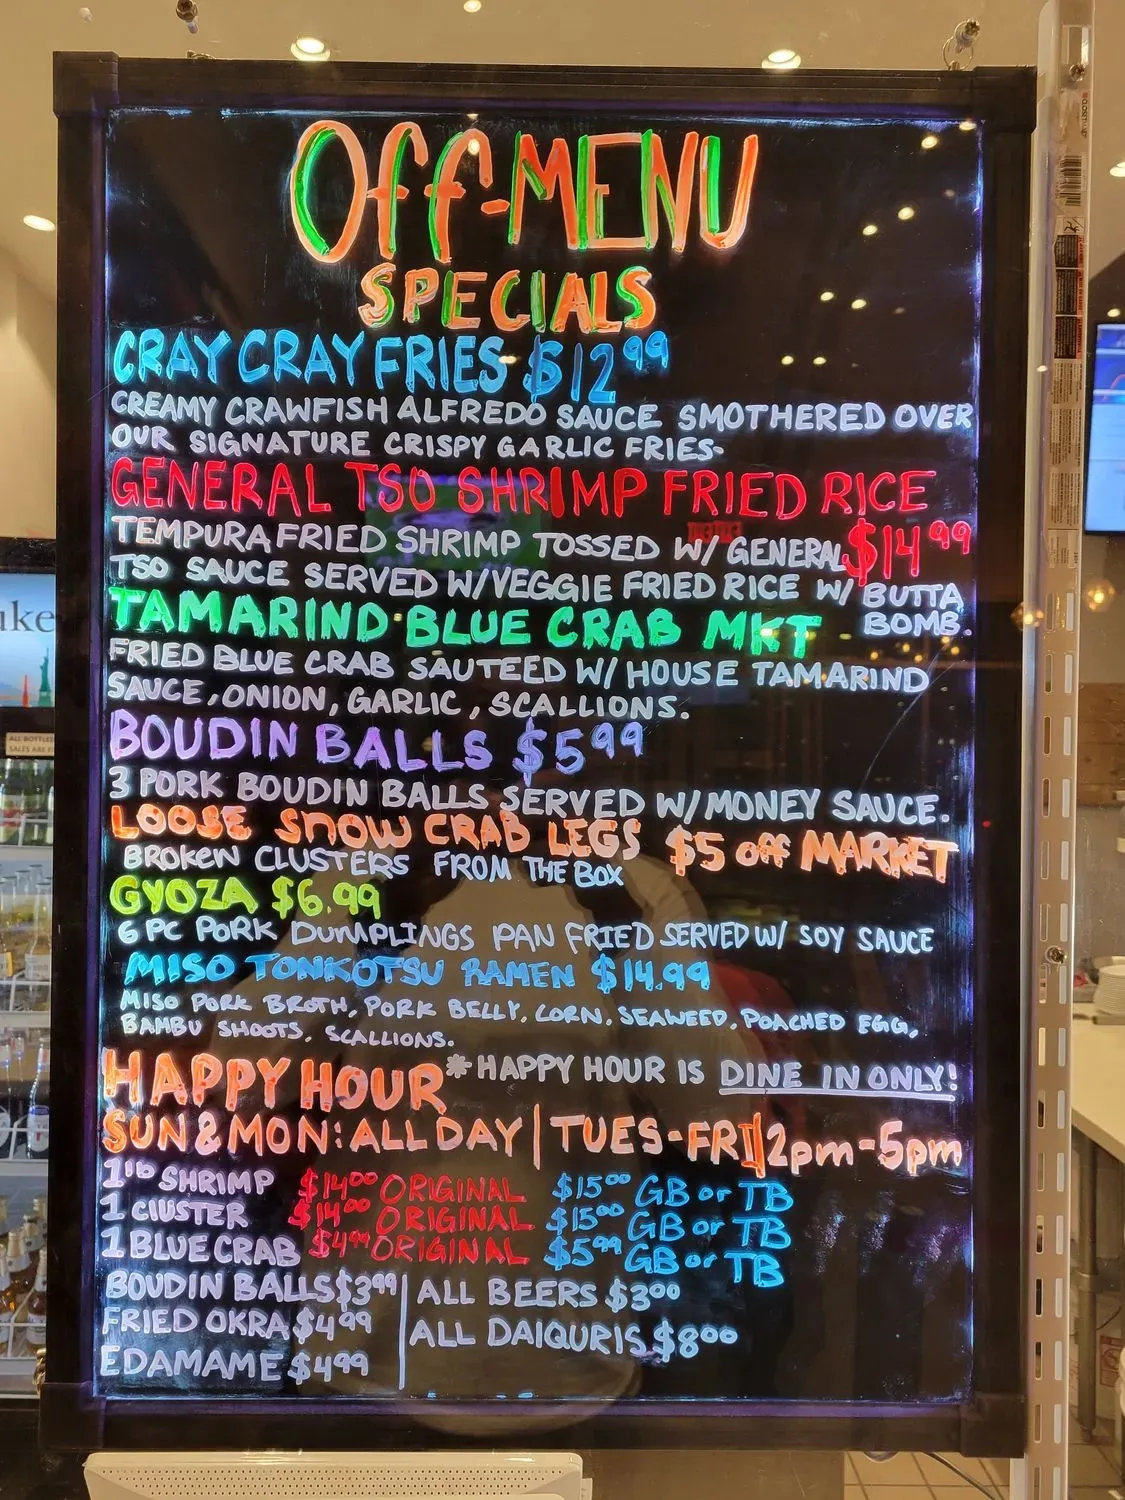 OFF-MENU
SPECIALS
CRAY CRAY FRIES $12.99
CREAMY CRAWFISH ALFREDO SAUCE SMOTHERED OVER
OUR SIGNATURE CRISPY GARLIC FRIES-
GENERAL TSO SHRIMP FRIED RICE
$14.99
TEMPURA FRIED SHRIMP TOSSED W/ GENERAL
TSO SAUCE SERVED W/VEGGIE FRIED RICE W/ BUTTA
BOMB.
TAMARIND BLUE CRAB MKT
FRIED BLUE CRAB SAUTEED W/ HOUSE TAMARIND
SAUCE, ONION, GARLIC, SCALLIONS.
BOUDIN BALLS $5.99
3 PORK BOUDIN BALLS SERVED W/MONEY SAUCE.
LOOSE SNOW CRAB LEGS $5 off MARKET
BROKEN CLUSTERS FROM THE BOX
GYOZA $6.99
6 PC PORK DUMPLINGS PAN FRIED SERVED W/ SOY SAUCE
MISO TONKOTSU RAMEN $14.99
MISO PORK BROTH, PORK BELLY, CORN, SEAWEED, POACHED EGG,
BAMBU SHOOTS, SCALLIONS.
HAPPY HOUR *HAPPY HOUR IS DINE IN ONLY!
SUN & MON: ALL DAY | TUES-FRI 12pm-5pm
1lb SHRIMP $14.00 ORIGINAL $15.00 GB or TB
1 CLUSTER $14.00 ORIGINAL $15.00 GB or TB
1 BLUE CRAB $4.99 ORIGINAL $5.99 GB or TB
BOUDIN BALLS $3.99 | ALL BEERS $3.00
FRIED OKRA $4.99 | ALL DAIQURIS $8.00
EDAMAME $4.99
uke